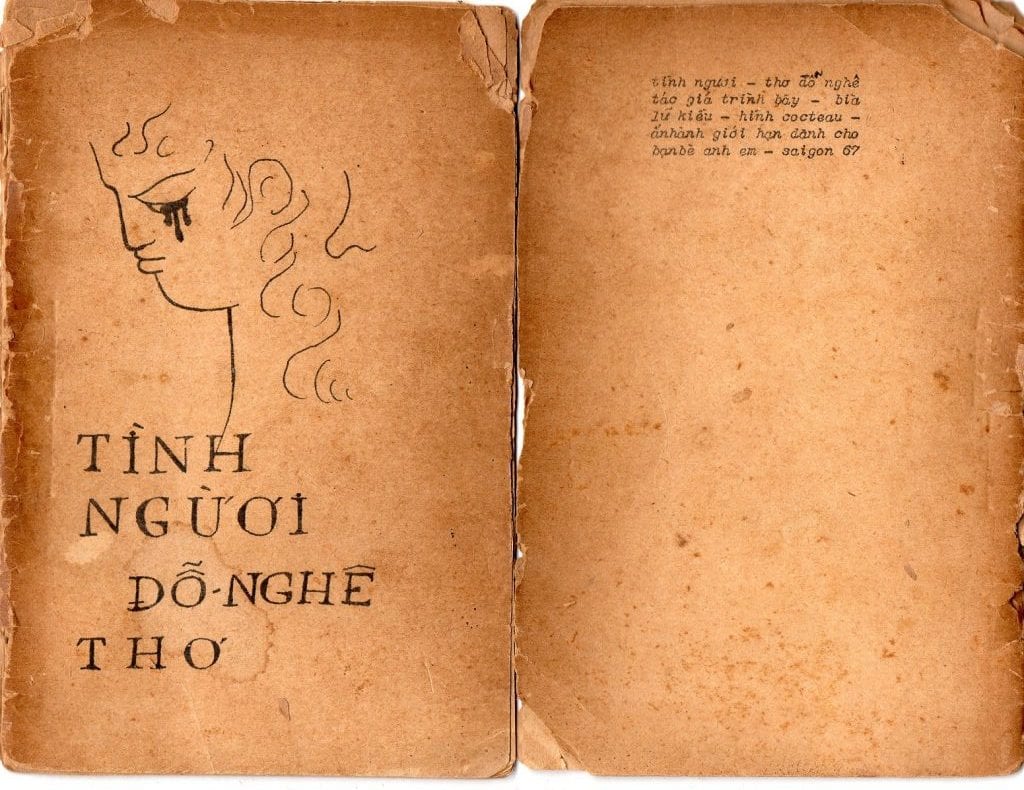 TÌNH
NGỪƠI
DỖ-NGHÊ
THƠ
tình người — thơ đỗ nghê
tác giả trình bày — bìa
lữ kiều — hình cocteau —
ấnhành giới hạn dành cho
bạnbè anh em — saigon 67